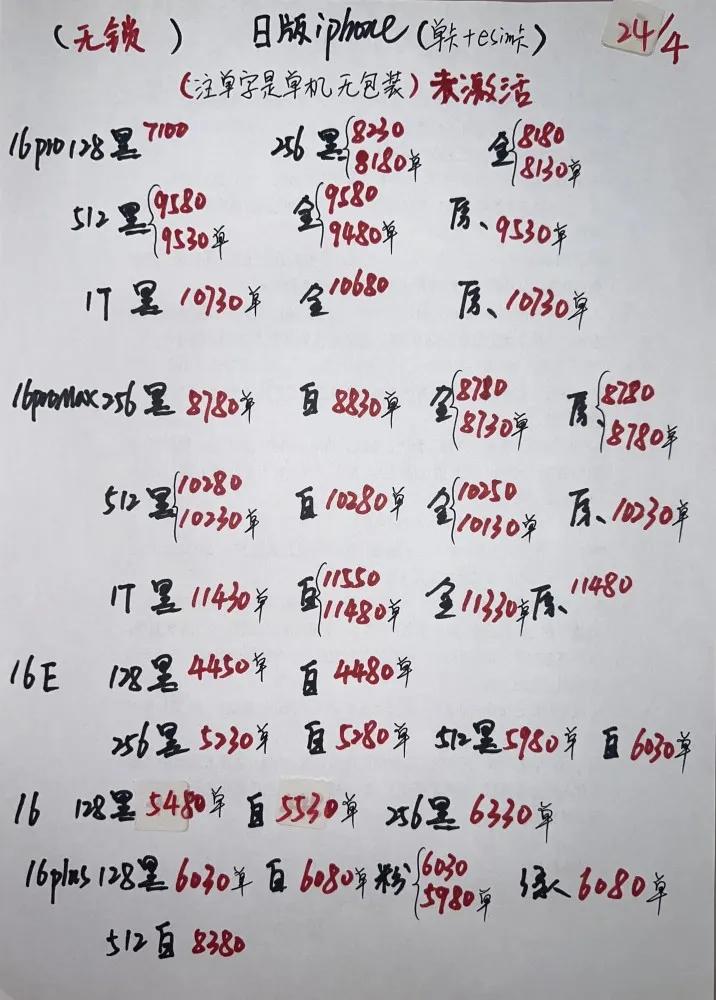 (无锁) 日版iphone(单卡+esim卡) 24/4
(注单字是单机无包装)未激活
16pro128黑7100 256黑{8230 8180单 金{8180 8130单
512黑{9580 9530单 金{9580 9480单 原、9530单
1T黑10730单 金10680 原、10730单
16proMax256黑8780单 白8830单 金{8780 8730单 原{8780 8780单
512黑{10280 10230单 白10280单 金{10250 10130单 原、10230单
1T黑11430单 白{11550 11480单 金11330单原、11480
16E 128黑4450单 白4480单
256黑5230单 白5280单 512黑5980单 白6030单
16 128黑5480单 白5530单 256黑6330单
16plus128黑6030单 白6080单粉{6030 5980单 绿6080单
512白8380